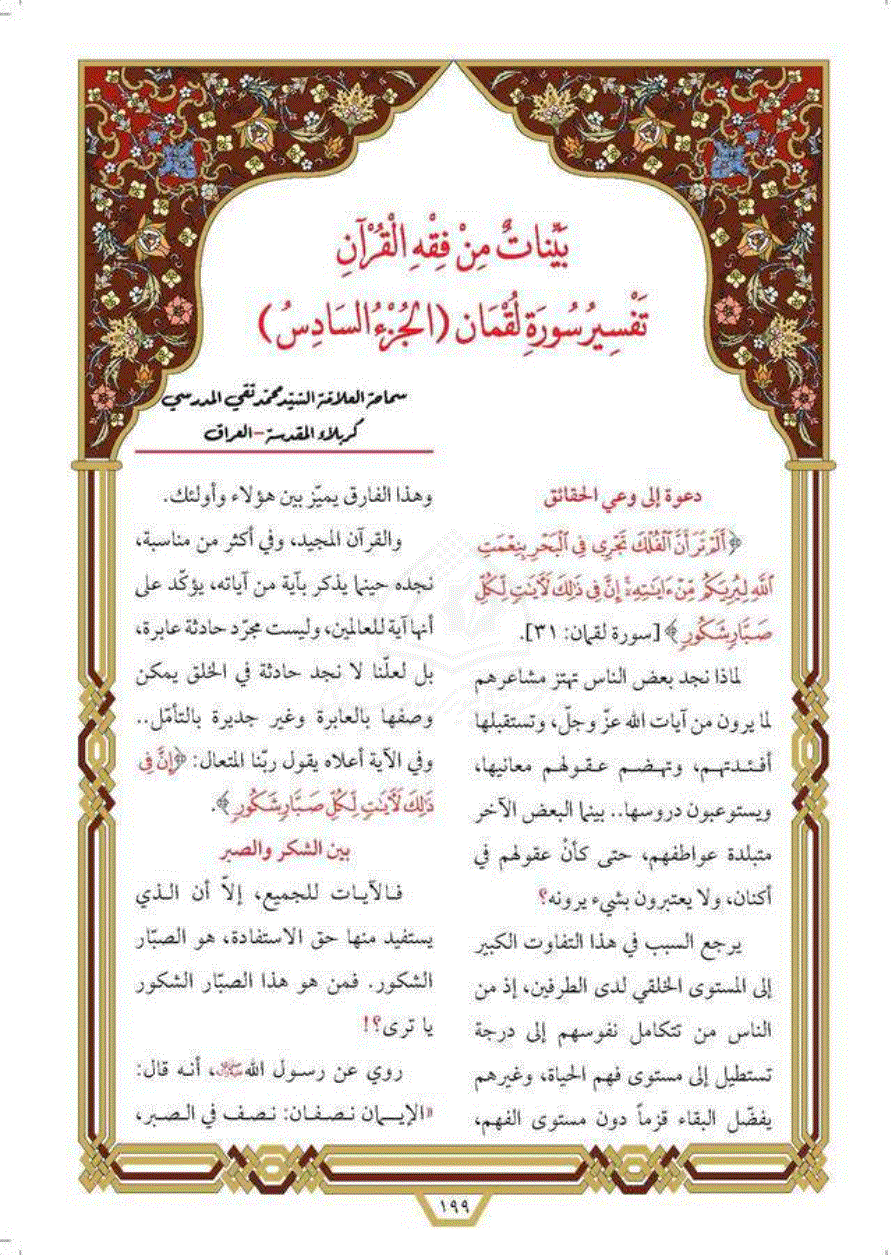 بَيِّنَاتٌ مِنْ فِقْهِ الْقُرْآنِ
تَفْسِيرُ سُورَةِ لُقْمَان (الجُزْءُ السَادِسُ)
سماحة العلامة السيّد محمد تقي المدرسي
كربلاء المقدسة – العراق
دعوة إلى وعي الحقائق
﴿أَلَمْ تَرَ أَنَّ ٱلْفُلْكَ تَجْرِى فِى ٱلْبَحْرِ بِنِعْمَتِ
ٱللَّهِ لِيُرِيَكُم مِّنْ ءَايَٰتِهِۦٓ ۚ إِنَّ فِى ذَٰلِكَ لَءَايَٰتٍ لِّكُلِّ
صَبَّارٍ شَكُورٍ﴾ [سورة لقمان: ٣١].
لماذا نجد بعض الناس تهتز مشاعرهم
لما يرون من آيات الله عزّ وجلّ، وتستقبلها
أفـئـدتـهـم، وتـهـضـم عـقـولهـم معانيها،
ويستوعبون دروسها.. بينما البعض الآخر
متبلدة عواطفهم، حتى كأنْ عقولهم في
أكنان، ولا يعتبرون بشيء يرونه؟
يرجع السبب في هذا التفاوت الكبير
إلى المستوى الخلقي لدى الطرفين، إذ من
الناس من تتكامل نفوسهم إلى درجة
تستطيل إلى مستوى فهم الحياة، وغيرهم
يفضّل البقاء قزماً دون مستوى الفهم،
وهذا الفارق يميّز بين هؤلاء وأولئك.
والقرآن المجيد، وفي أكثر من مناسبة،
نجده حينما يذكر بآية من آياته، يؤكّد على
أنها آية للعالمين، وليست مجرّد حادثة عابرة،
بل لعلّنا لا نجد حادثة في الخلق يمكن
وصفها بالعابرة وغير جديرة بالتأمّل..
وفي الآية أعلاه يقول ربّنا المتعال: ﴿إِنَّ فِى
ذَٰلِكَ لَءَايَٰتٍ لِّكُلِّ صَبَّارٍ شَكُورٍ﴾.
بين الشكر والصبر
فـالآيـات للجميع، إلاّ أن الـذي
يستفيد منها حق الاستفادة، هو الصبّار
الشكور. فمن هو هذا الصبّار الشكور
يا ترى؟!
روي عن رسـول الله ﷺ، أنـه قال:
«الإيــمان نـصـفـان: نـصـف في الـصـبر،
١٩٩